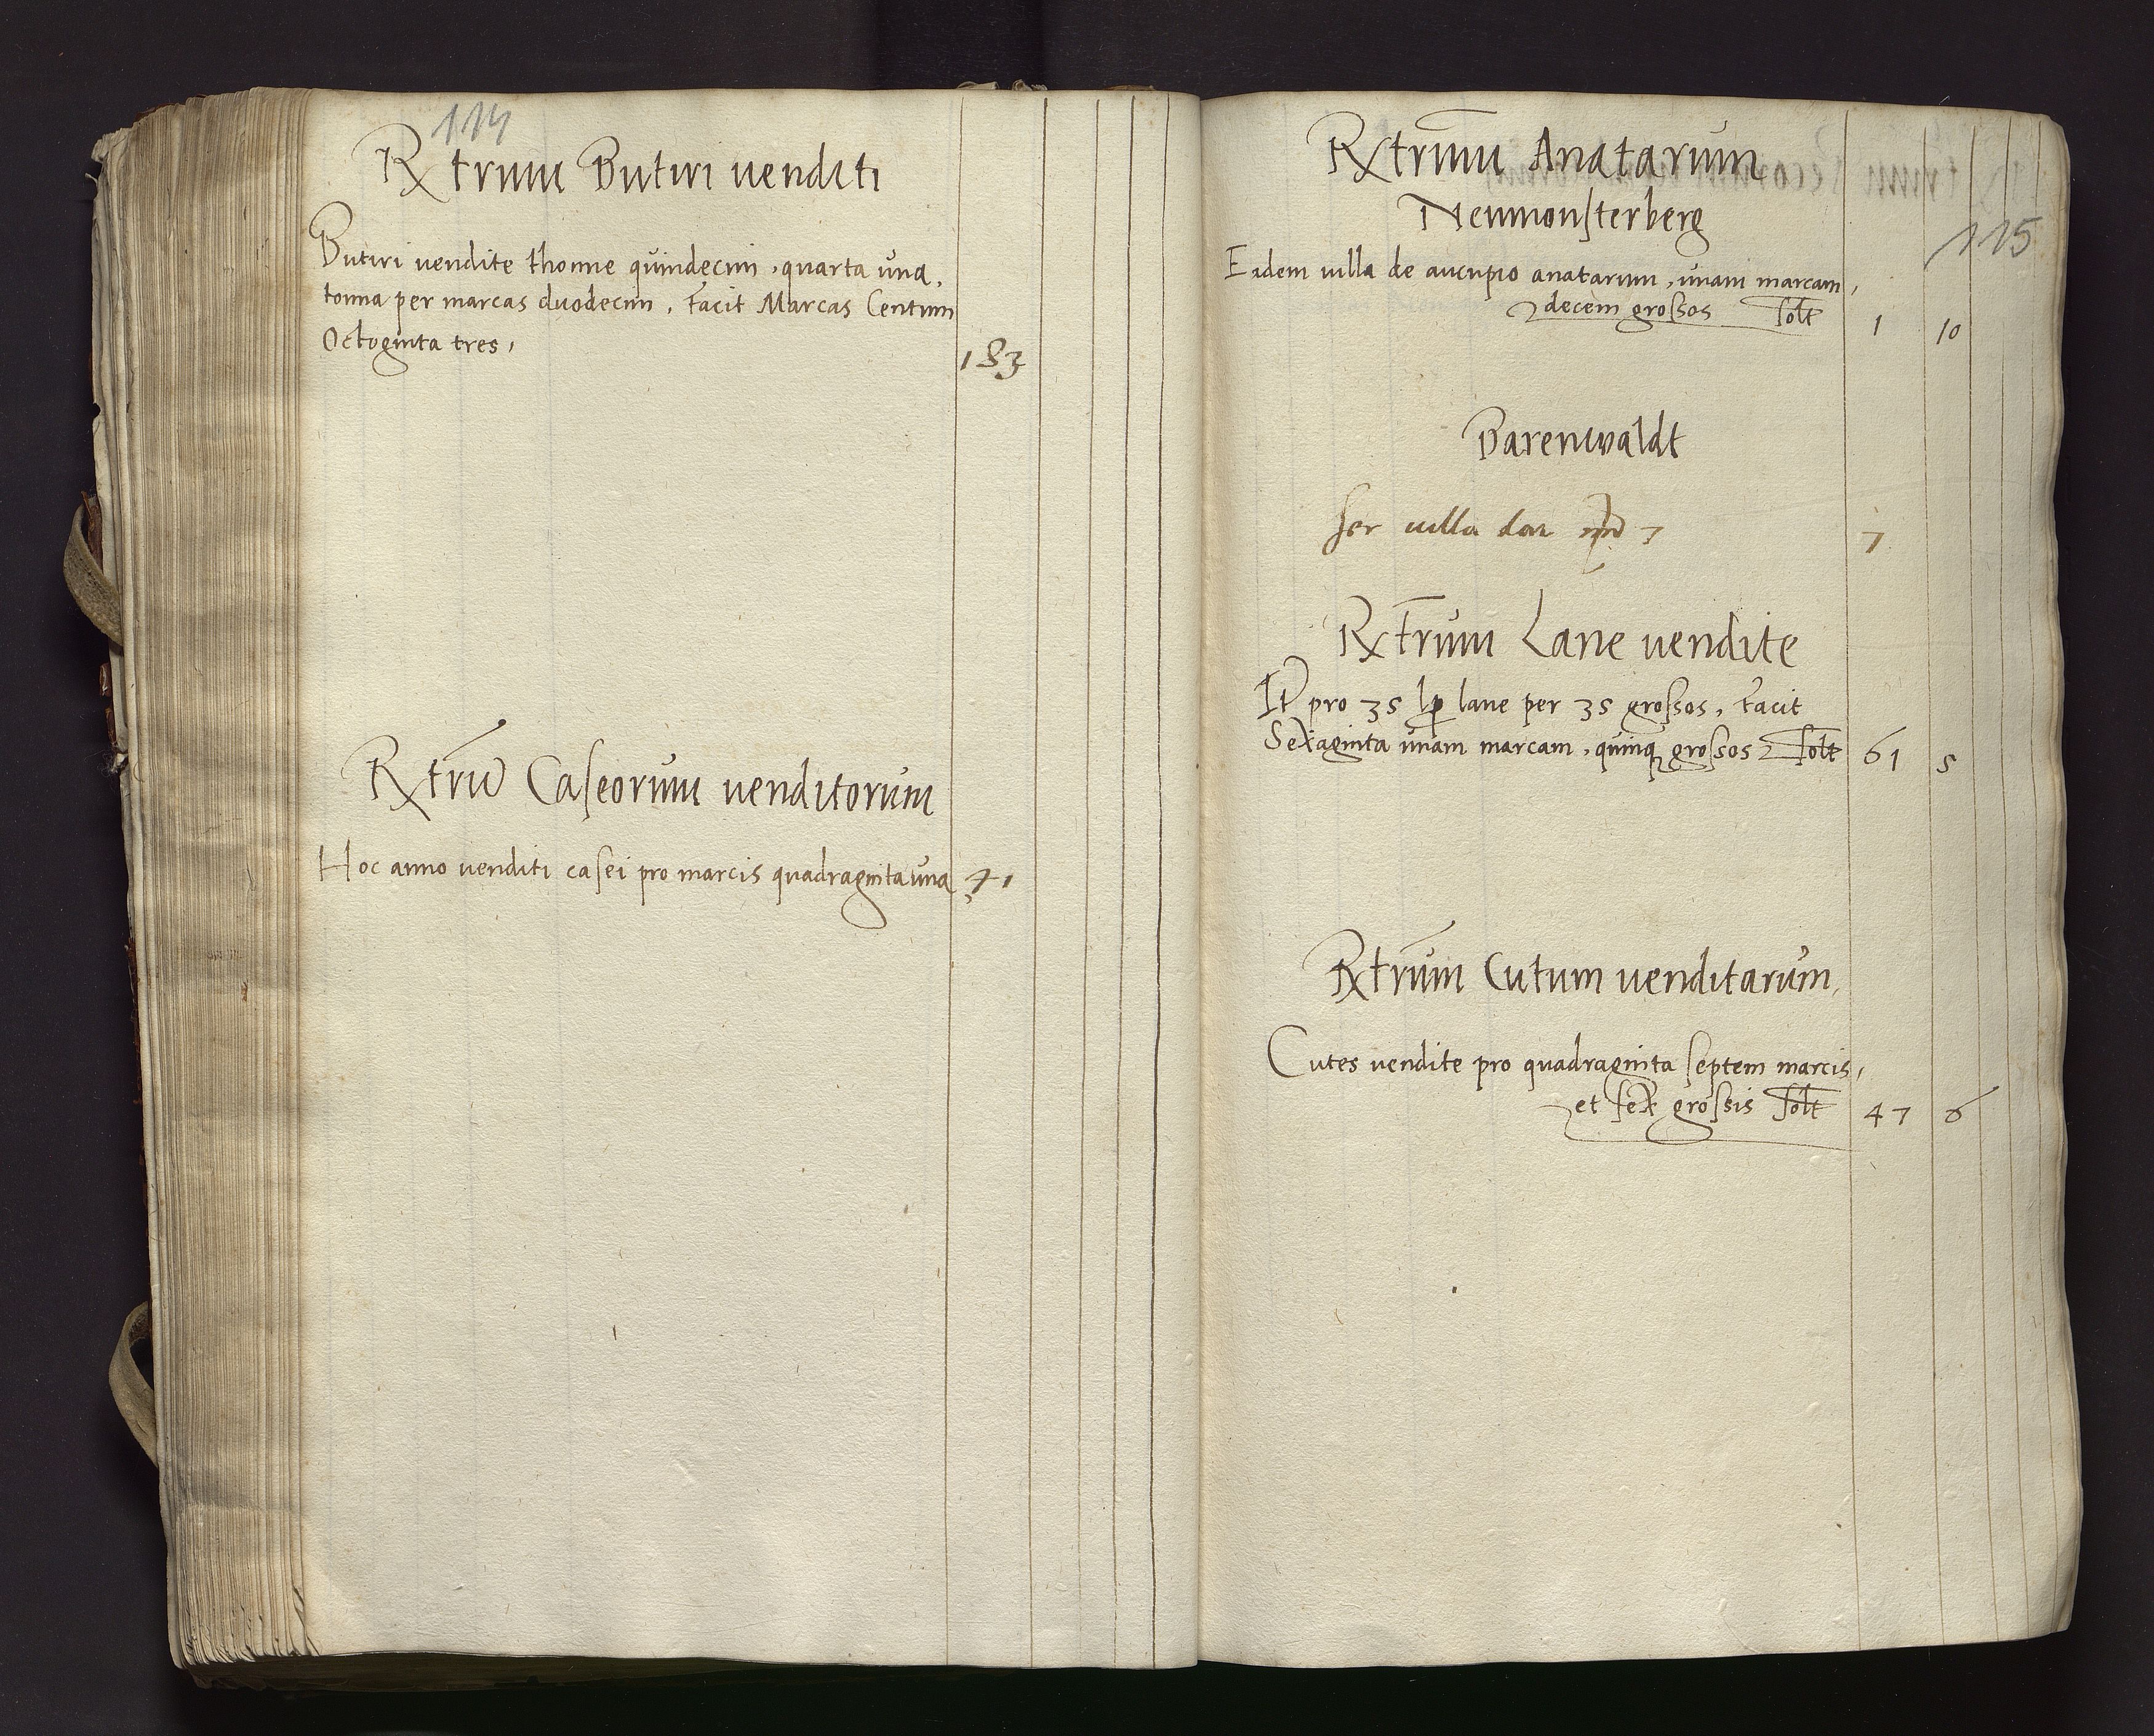 114
Rxtrum Butiri venditi
Butiri vendite thonne quindecim, quarta una,
tonna per marcas duodecim, facit Marcas Centum
Octoginta tres,
183
Rxtrum Caseorum venditorum
Hoc anno venditi casei pro marcis quadraginta una 41
Rxtrum Anatarum
115
Neumonsterberg
Eidem villa de aucupio anatarum, unam marcam,
decem grossos solt 1 10
Barenwaldt
villa 7 7
Rxtrum Lane vendite
It pro 35 lp lane per 35 grossos, facit
Sexaginta unam marcam, quinq grossos solt 61 5
Rxtrum Cutum venditarum,
Cutes vendite pro quadraginta septem marcis,
et sex grossis solt 47 6